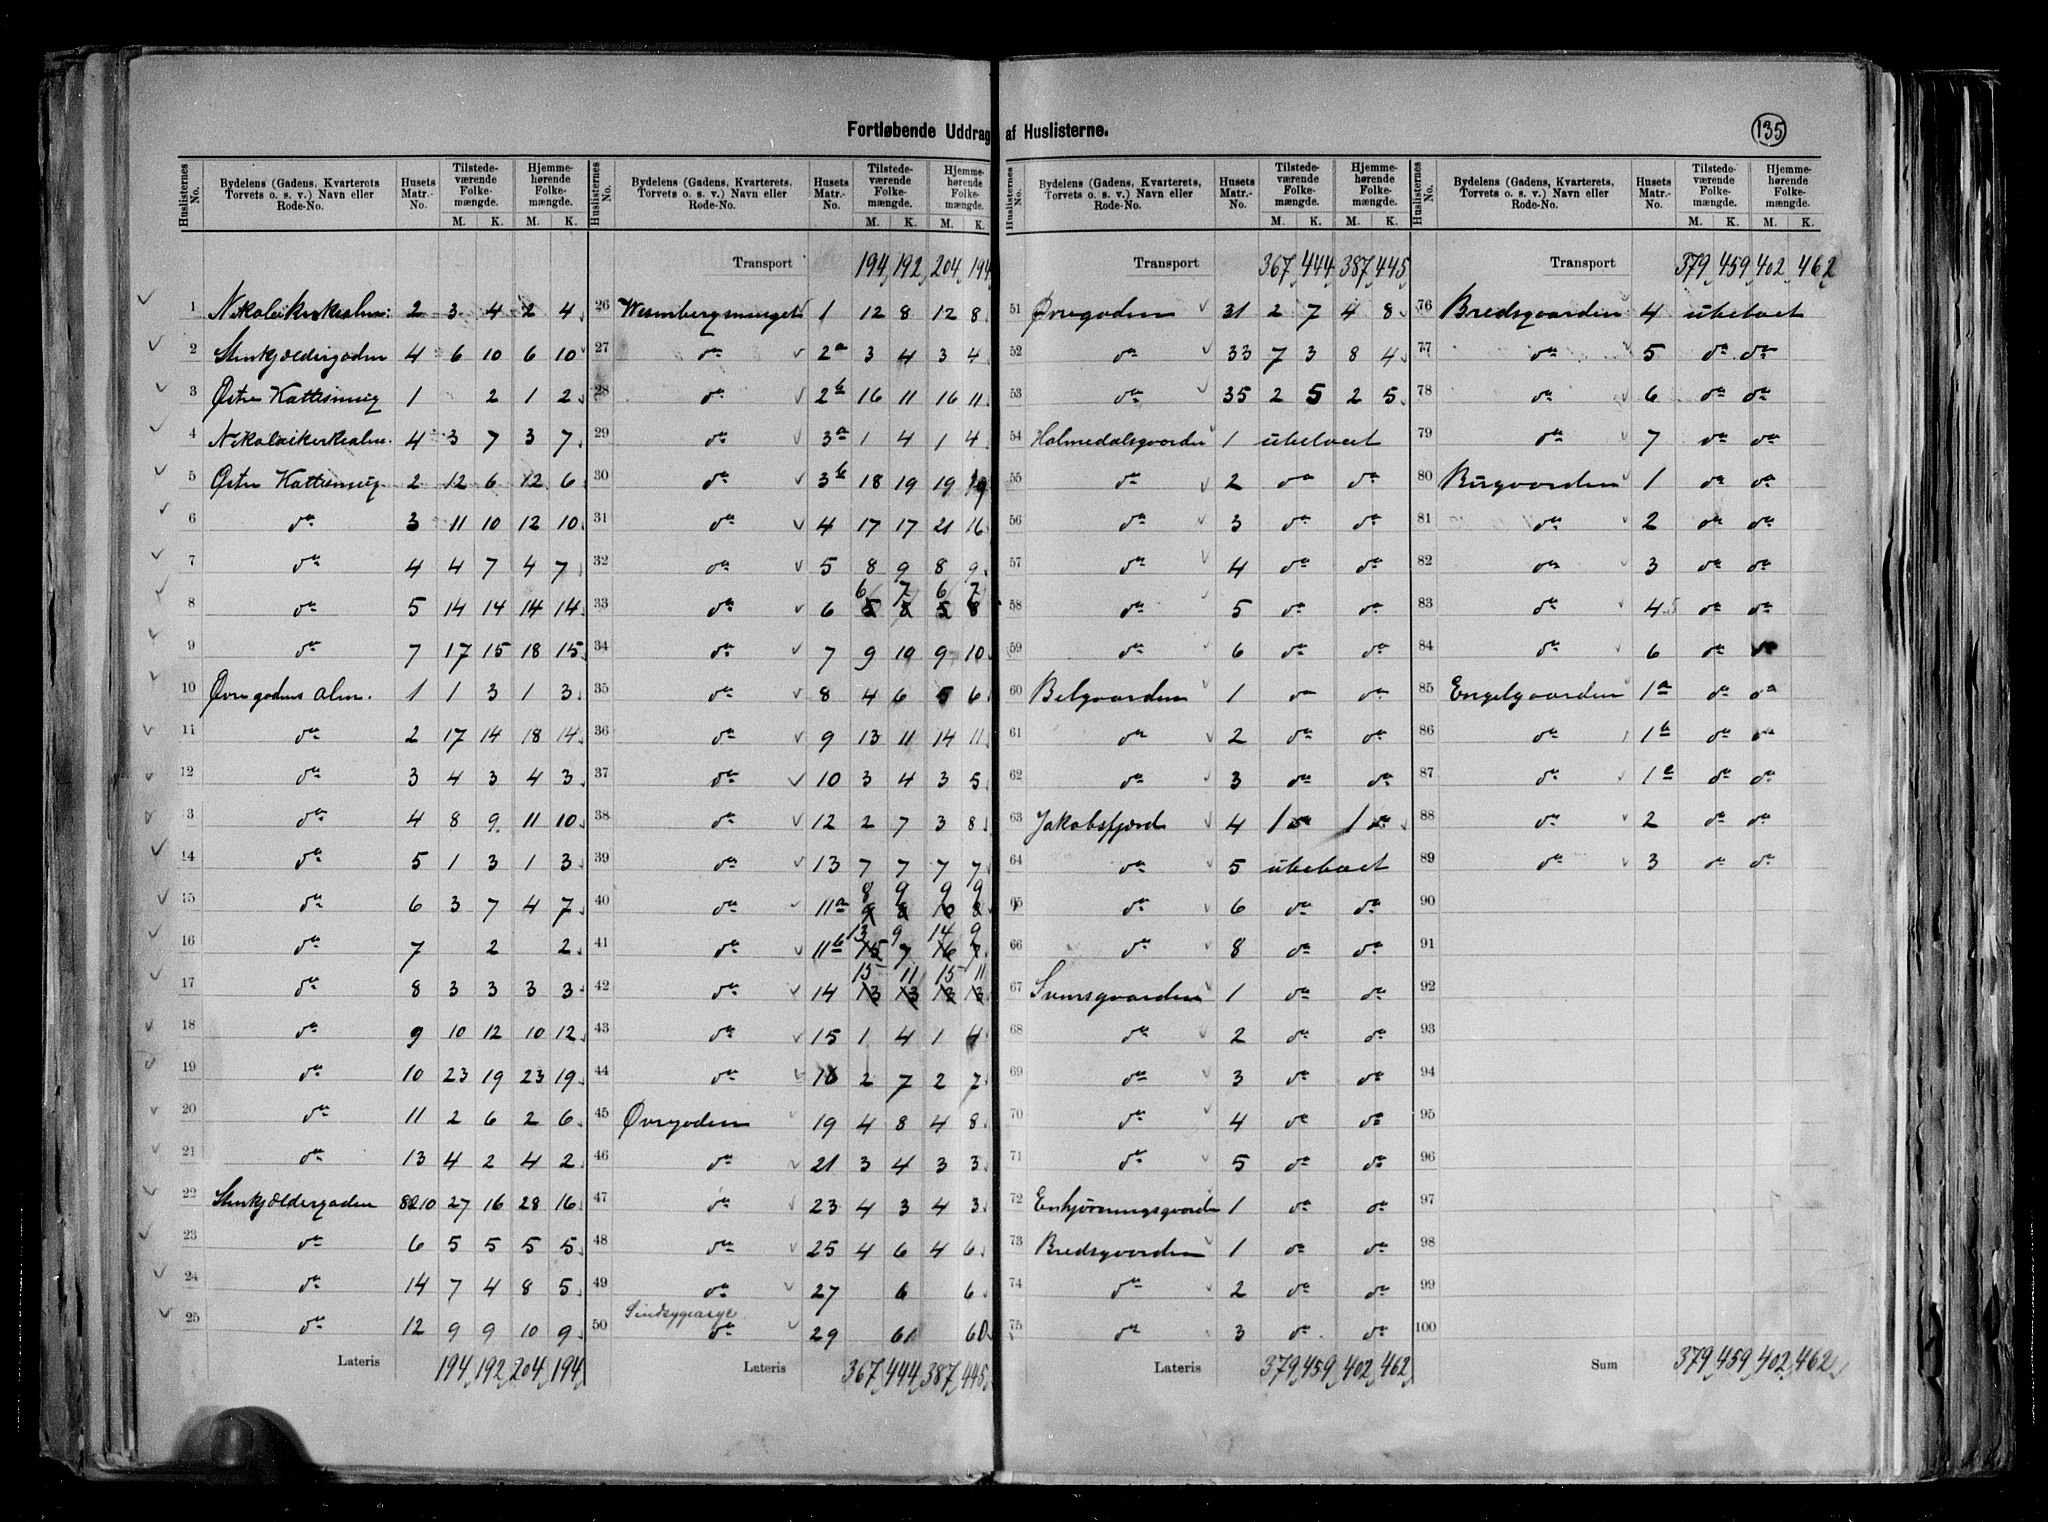 Fortløbende Uddrag af Huslisterne.
135
Huslisternes No. | Bydelens (Gadens, Kvarterets, Torvets o. s. v.) Navn eller Rode-No. | Husets Matr.-No. | Tilstedeværende Folkemængde. M. K. | Hjemmehørende Folkemængde. M. K.
1 Nikolaikirkealm: 2 3 4 2 4
2 Stenkjældergaden 4 6 10 6 10
3 Østre Kattesmug 1 2 1 2
4 Nikolaikirkealm. 4 3 7 3 7
5 Østre Kattesmug 2 12 6 12 6
6 do 3 11 10 12 10
7 do 4 4 7 4 7
8 do 5 14 14 14 14
9 do 7 17 15 18 15
10 Øvregadens Alm. 1 1 3 1 3
11 do 2 17 14 18 14
12 do 3 4 3 4 3
13 do 4 8 9 11 10
14 do 5 1 3 1 3
15 do 6 3 7 4 7
16 do 7 2 2
17 do 8 3 3 3 3
18 do 9 10 12 10 12
19 do 10 23 19 23 19
20 do 11 2 6 2 6
21 do 13 4 2 4 2
22 Stenkjældergaden 8&10 27 16 28 16
23 do 6 5 5 5 5
24 do 14 7 4 8 5
25 do 12 9 9 10 9
Lateris 194 192 204 194
Huslisternes No. | Bydelens (Gadens, Kvarterets, Torvets o. s. v.) Navn eller Rode-No. | Husets Matr.-No. | Tilstedeværende Folkemængde. M. K. | Hjemmehørende Folkemængde. M. K.
Transport 194 192 204 194
26 Wesenbergsmuget 1 12 8 12 8
27 do 2a 3 4 3 4
28 do 2b 16 11 16 11
29 do 3a 1 4 1 4
30 do 3b 18 19 19 19
31 do 4 17 17 21 16
32 do 5 8 9 8 9
6 7 6 7
33 do 6 5 8 5 8
34 do 7 9 10 9 10
35 do 8 4 6 5 6
36 do 9 13 11 14 11
37 do 10 3 4 3 5
38 do 12 2 7 3 8
39 do 13 7 7 7 7
8 9 9 9
40 do 11a 9 8 10 8
13 9 14 9
41 do 11b 15 7 16 7
15 11 15 11
42 do 14 13 13 13 13
43 do 15 1 4 1 4
44 do 16 2 7 2 7
45 Øvregaden 19 4 8 4 8
46 do 21 3 4 3 3
47 do 23 4 3 4 3
48 do 25 4 6 4 6
49 do 27 6 6
Sindsygeasyl
50 do 29 61 60
Lateris 367 444 387 445
Huslisternes No. | Bydelens (Gadens, Kvarterets, Torvets o. s. v.) Navn eller Rode-No. | Husets Matr.-No. | Tilstedeværende Folkemængde. M. K. | Hjemmehørende Folkemængde. M. K.
Transport 367 444 387 445
51 Øvregaden 31 2 7 4 8
52 do 33 7 3 8 4
53 do 35 2 5 2 5
54 Holmedalsgaarden 1 ubeboet
55 do 2 do do
56 do 3 do do
57 do 4 do do
58 do 5 do do
59 do 6 do do
60 Belgaarden 1 do do
61 do 2 do do
62 do 3 do do
63 Jakobsfjord 4 1 do 1 do
64 do 5 ubeboet
65 do 6 do do
66 do 8 do do
67 Svensgaarden 1 do do
68 do 2 do do
69 do 3 do do
70 do 4 do do
71 do 5 do do
72 Enhjørningsgaarden 1 do do
73 Bredsgaarden 1 do do
74 do 2 do do
75 do 3 do do
Lateris 379 459 402 462
Huslisternes No. | Bydelens (Gadens, Kvarterets, Torvets o. s. v.) Navn eller Rode-No. | Husets Matr.-No. | Tilstedeværende Folkemængde. M. K. | Hjemmehørende Folkemængde. M. K.
Transport 379 459 402 462
76 Bredsgaarden 4 ubeboet
77 do 5 do do
78 do 6 do do
79 do 7 do do
80 Bugaarden 1 do do
81 do 2 do do
82 do 3 do do
83 do 4 5 do do
84 do 6 do do
85 Engelgaarden 1a do do
86 do 1b do do
87 do 1c do do
88 do 2 do do
89 do 3 do do
90
91
92
93
94
95
96
97
98
99
100
Sum 379 459 402 462